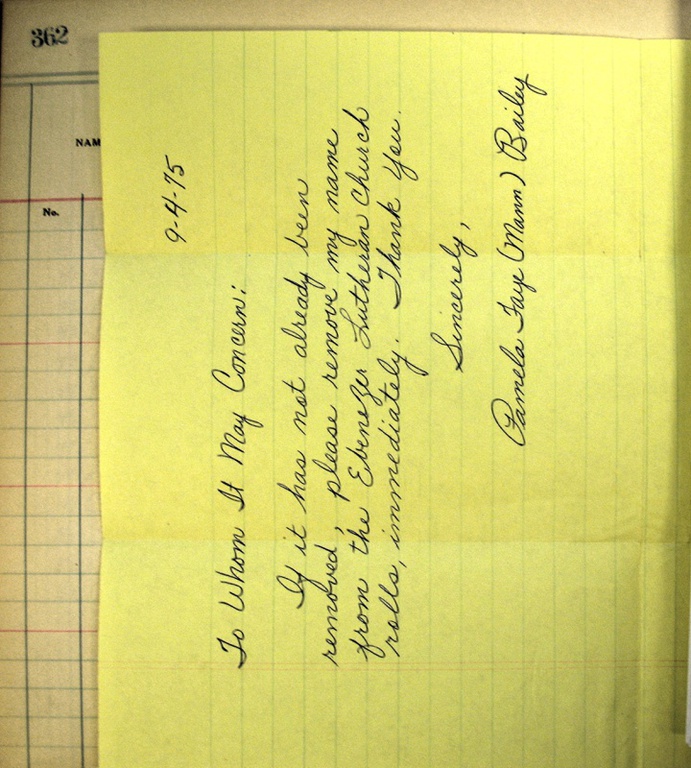 362
NAM
No.
9-4-75
To Whom It May Concern:
If it has not already been
removed, please remove my name
from the Ebenezer Lutheran Church
rolls, immediately. Thank you.
Sincerely,
Pamela Faye (Mann) Bailey